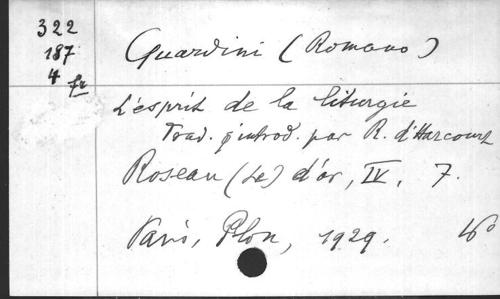 322
187
4 fr
Guardini (Romano)
L'esprit de la liturgie
Trad. & introd. par R. d'Harcourt
Roseau (Le) d'or, IV, 7.
Paris, Plon, 1929.